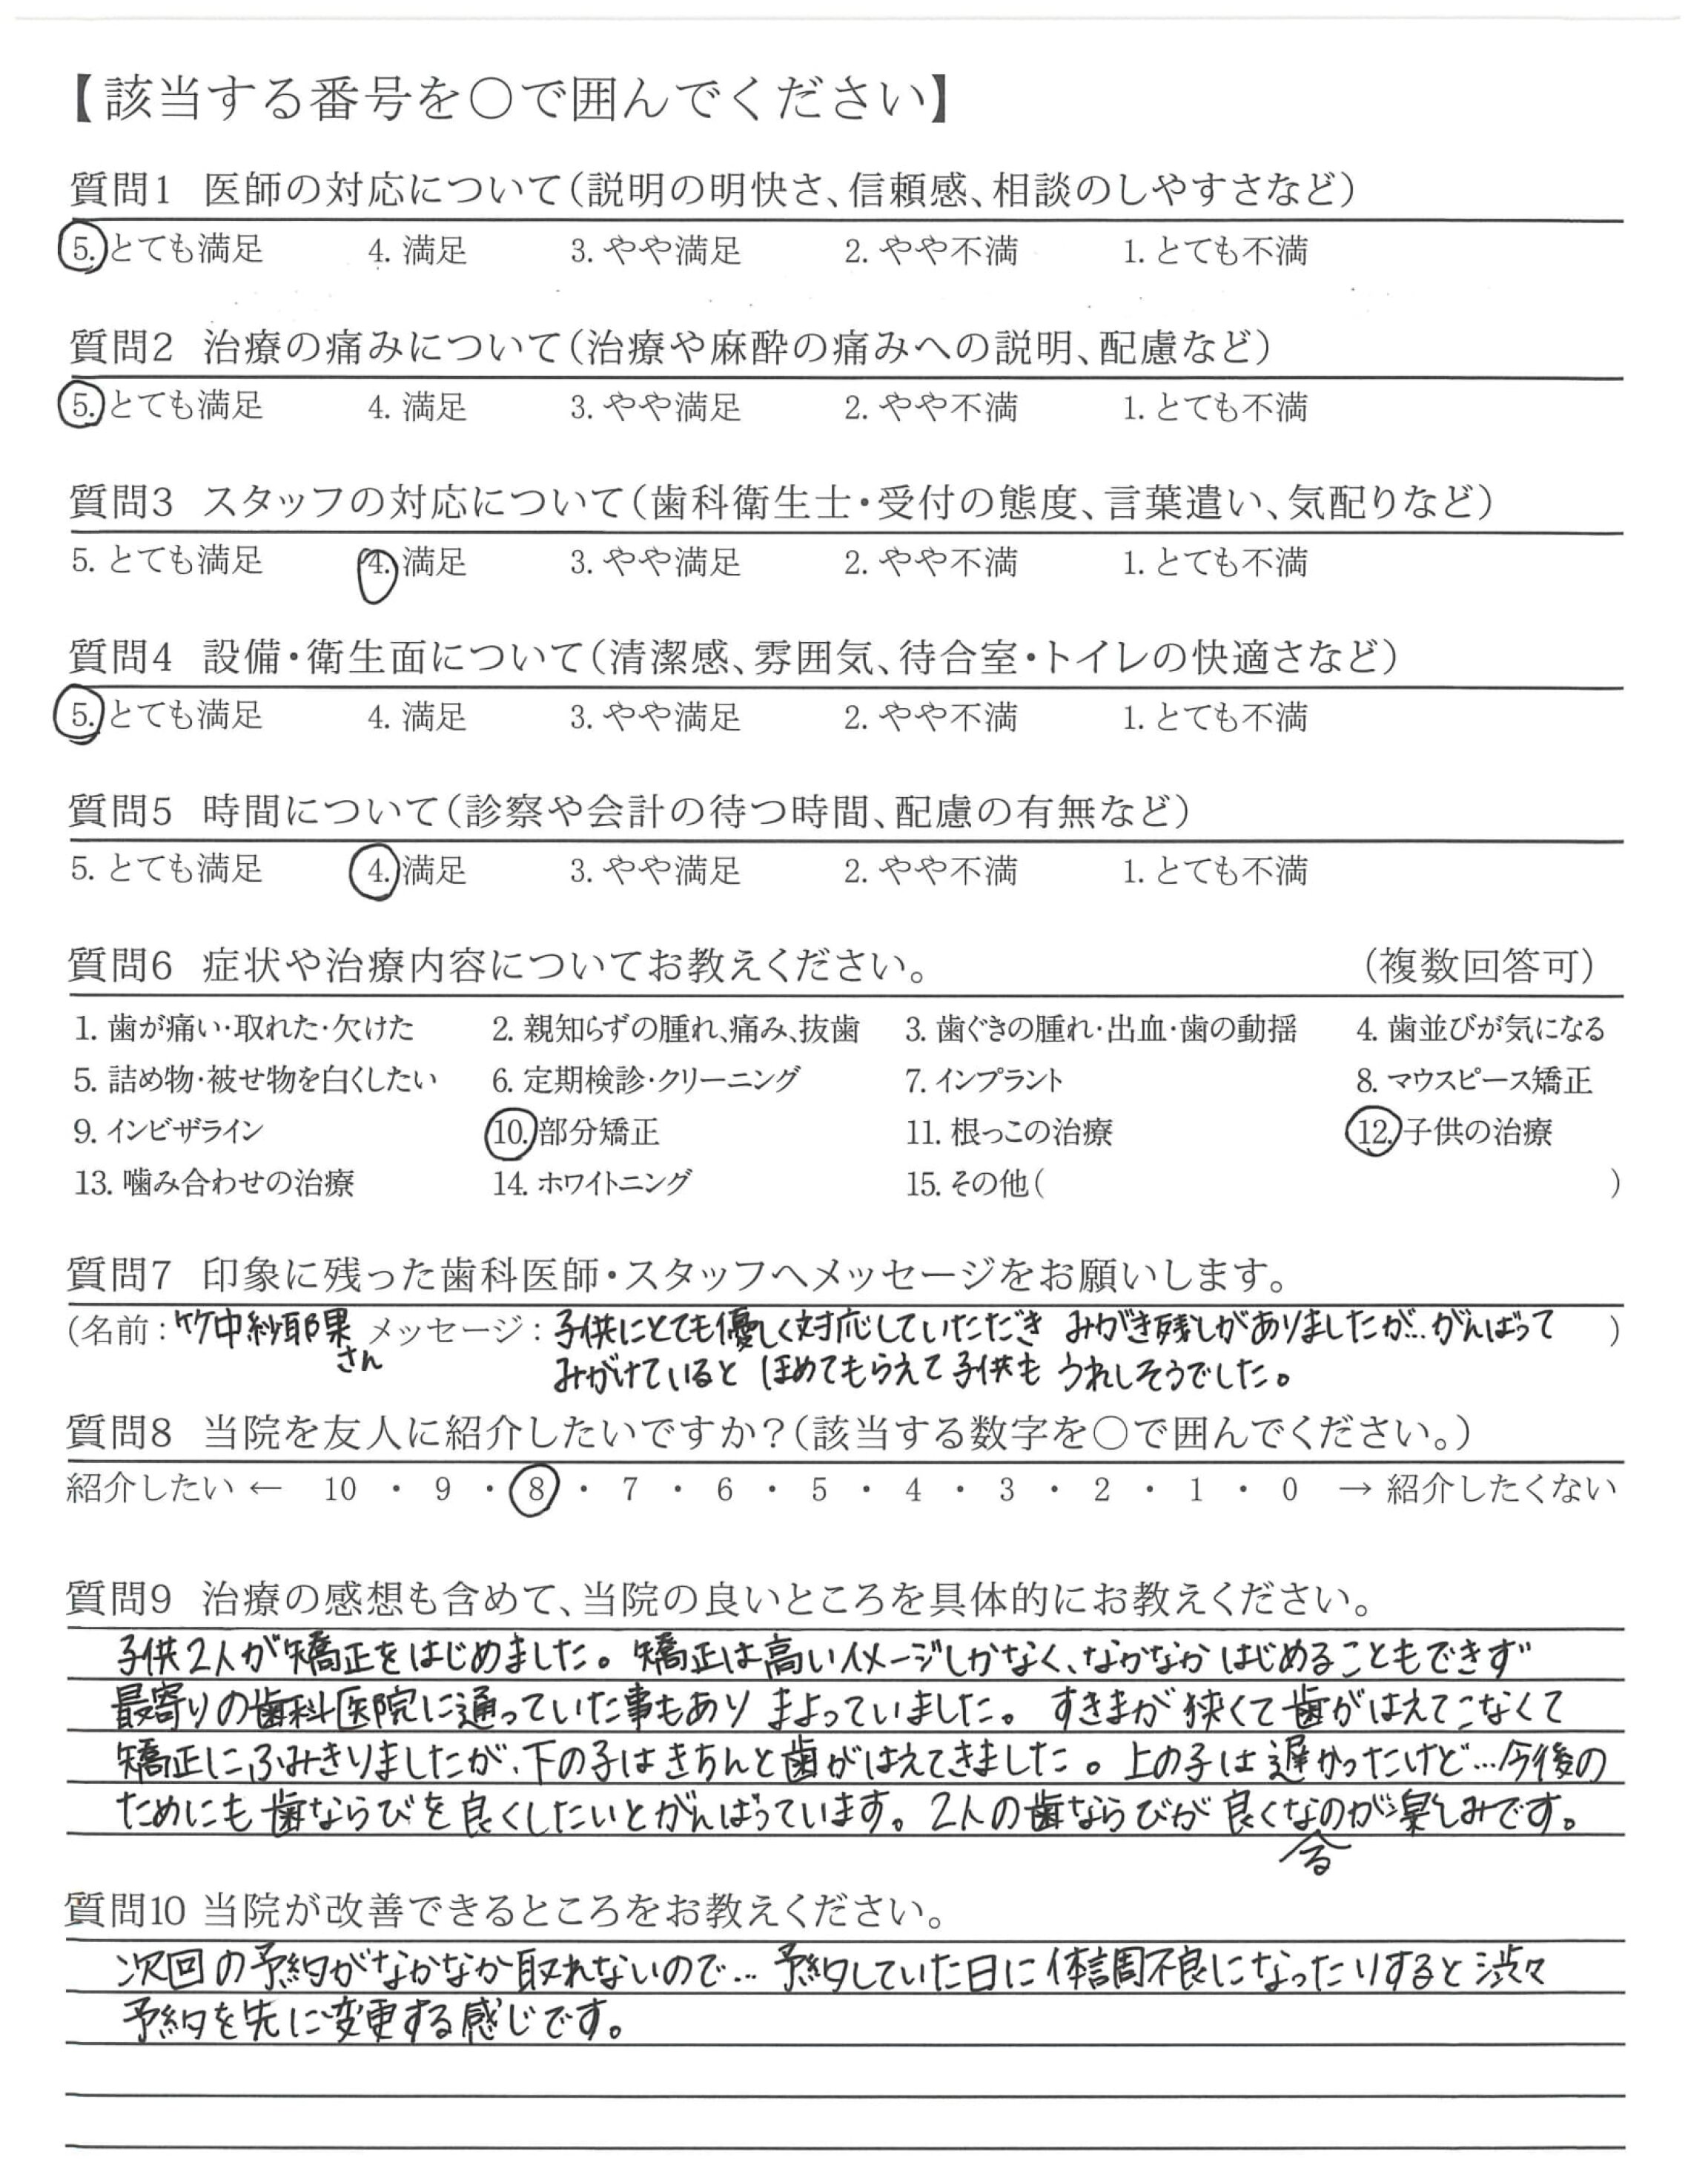 【該当する番号を○で囲んでください】
質問1 医師の対応について（説明の明快さ、信頼感、相談のしやすさなど）
5. とても満足 4. 満足 3. やや満足 2. やや不満 1. とても不満
質問2 治療の痛みについて（治療や麻酔の痛みへの説明、配慮など）
5. とても満足 4. 満足 3. やや満足 2. やや不満 1. とても不満
質問3 スタッフの対応について（歯科衛生士・受付の態度、言葉遣い、気配りなど）
5. とても満足 4. 満足 3. やや満足 2. やや不満 1. とても不満
質問4 設備・衛生面について（清潔感、雰囲気、待合室・トイレの快適さなど）
5. とても満足 4. 満足 3. やや満足 2. やや不満 1. とても不満
質問5 時間について（診察や会計の待つ時間、配慮の有無など）
5. とても満足 4. 満足 3. やや満足 2. やや不満 1. とても不満
質問6 症状や治療内容についてお教えください。 （複数回答可）
1. 歯が痛い・取れた・欠けた 2. 親知らずの腫れ、痛み、抜歯 3. 歯ぐきの腫れ・出血・歯の動揺 4. 歯並びが気になる
5. 詰め物・被せ物を白くしたい 6. 定期検診・クリーニング 7. インプラント 8. マウスピース矯正
9. インビザライン 10. 部分矯正 11. 根っこの治療 12. 子供の治療
13. 噛み合わせの治療 14. ホワイトニング 15. その他（ ）
質問7 印象に残った歯科医師・スタッフへメッセージをお願いします。
（名前：竹中紗耶果さん メッセージ：子供にとても優しく対応していただき みがき残しがありましたが…がんばって ）
みがけていると ほめてもらえて子供も うれしそうでした。
質問8 当院を友人に紹介したいですか？（該当する数字を○で囲んでください。）
紹介したい ← 10 ・ 9 ・ 8 ・ 7 ・ 6 ・ 5 ・ 4 ・ 3 ・ 2 ・ 1 ・ 0 → 紹介したくない
質問9 治療の感想も含めて、当院の良いところを具体的にお教えください。
子供2人が矯正をはじめました。矯正は高いイメージしかなく、なかなか はじめることもできず
最寄りの歯科医院に通っていた事もあり まよっていました。 すきまが狭くて歯がはえてこなくて
矯正にふみきりましたが、下の子はきちんと歯がはえてきました。上の子は遅かったけど…今後の
ためにも歯ならびを良くしたいとがんばっています。2人の歯ならびが良くなるのが楽しみです。
質問10 当院が改善できるところをお教えください。
次回の予約がなかなか取れないので… 予約していた日に体調不良になったりすると渋々
予約を先に変更する感じです。